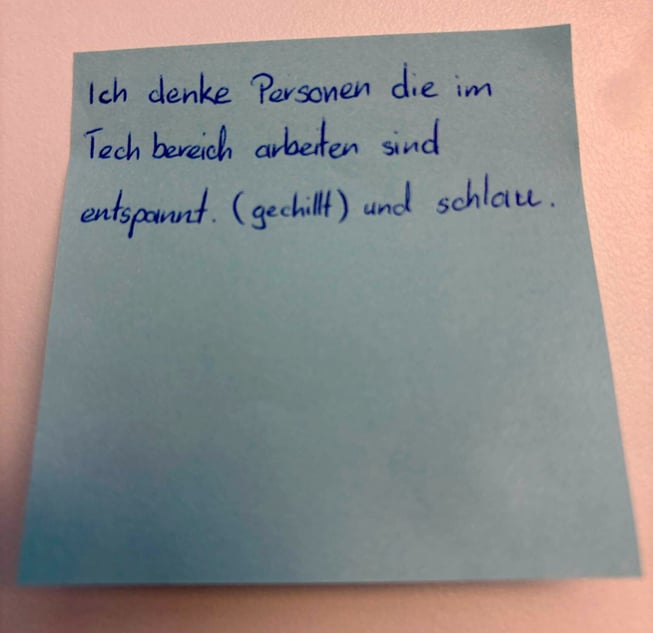 Ich denke Personen die im
Tech bereich arbeiten sind
entspannt. (gechillt) und schlau.